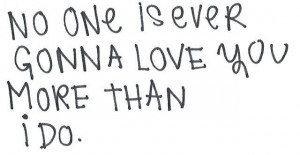 NO ONe iS eVeR
GONNA LOVE YOU
MORE THAN
i DO.